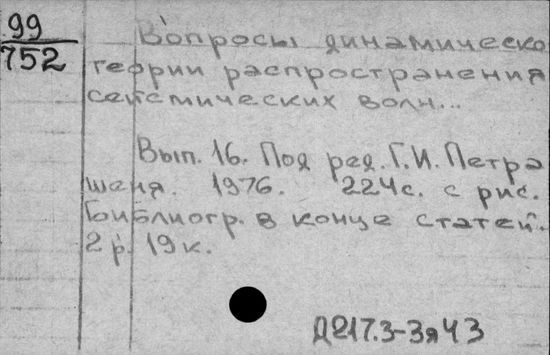 99
752
Вопросы динамическо
теории распространения
сейсмических волн...
Вып. 16. Под ред. Г.И. Петра
шеня. 1976. 224 с. с рис.
Библиогр. в конце статей.
2 р. 19 к.
Д217.3-3я43